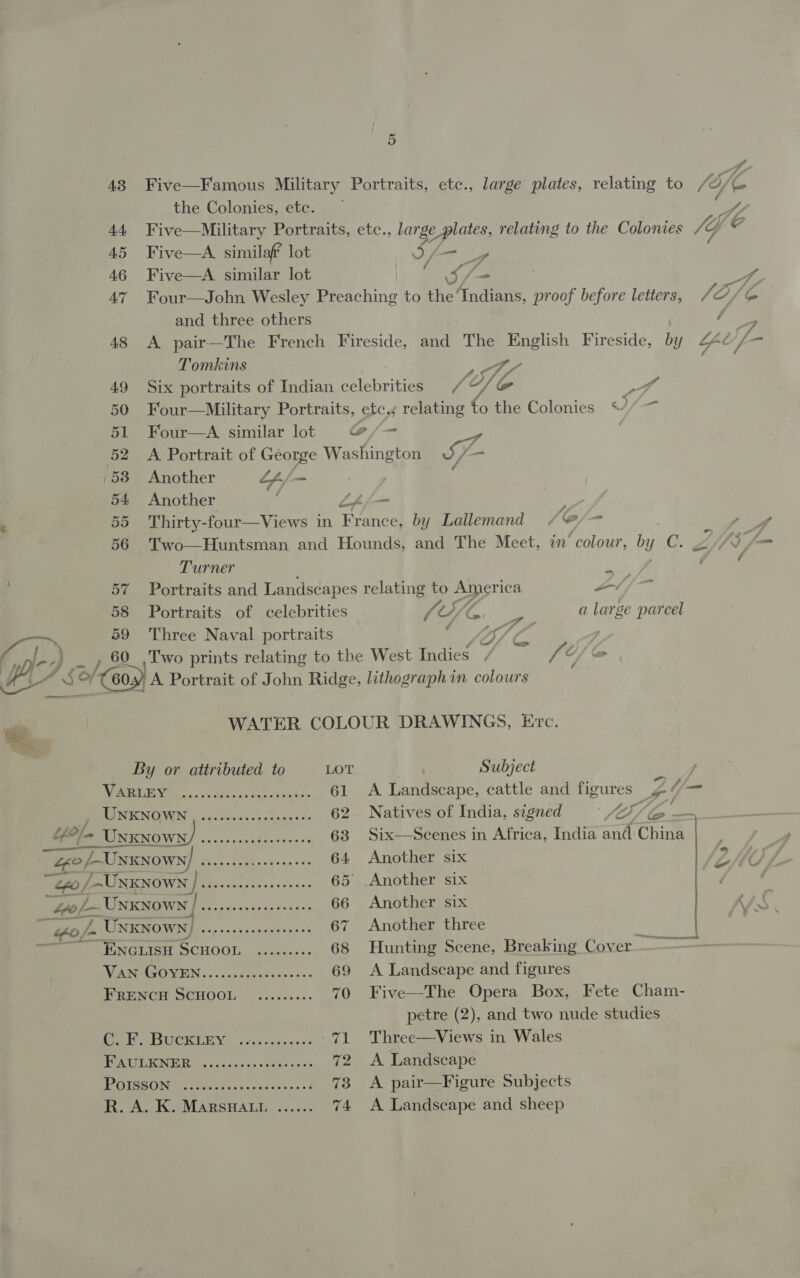 5
43 Five—Famous Military Portraits, etc., large plates, relating to
the Colonies, etc.
44 Five—Military Portraits, etc., large plates, relating to the Colonies
45 Five—A similar lot 5/-
46 Five—A similar lot 5/-
47 Four—John Wesley Preaching to the Indians, proof before letters,
and three others
48 A pair—The French Fireside, and The English Fireside, by
Tomkins
49 Six portraits of Indian celebrities
50 Four—Military Portraits, etc., relating to the Colonies
51 Four—A similar lot
52 A Portrait of George Washington 5/-
53 Another
54 Another
55 Thirty-four—Views in France, by Lallemand
56 Two—Huntsman and Hounds, and The Meet, in colour, by C.
Turner
57 Portraits and Landscapes relating to America
58 Portraits of celebrities a large parcel
59 Three Naval portraits
60 Two prints relating to the West Indies
(60A) A Portrait of John Ridge, lithograph in colours
WATER COLOUR DRAWINGS, Etc.
By or attributed to LOT Subject
VARLEY ..................... 61 A Landscape, cattle and figures
UNKNOWN ..................... 62 Natives of India, signed
UNKNOWN ..................... 63 Six—Scenes in Africa, India and China
UNKNOWN ..................... 64 Another six
UNKNOWN ..................... 65 Another six
UNKNOWN ..................... 66 Another six
UNKNOWN ..................... 67 Another three
ENGLISH SCHOOL ......... 68 Hunting Scene, Breaking Cover
VAN GOYEN..................... 69 A Landscape and figures
FRENCH SCHOOL ......... 70 Five—The Opera Box, Fete Cham-
petre (2), and two nude studies
C. F. BUCKLEY ............ 71 Three—Views in Wales
FAULKNER ..................... 72 A Landscape
POISSON ..................... 73 A pair—Figure Subjects
R. A. K. MARSHALL ...... 74 A Landscape and sheep